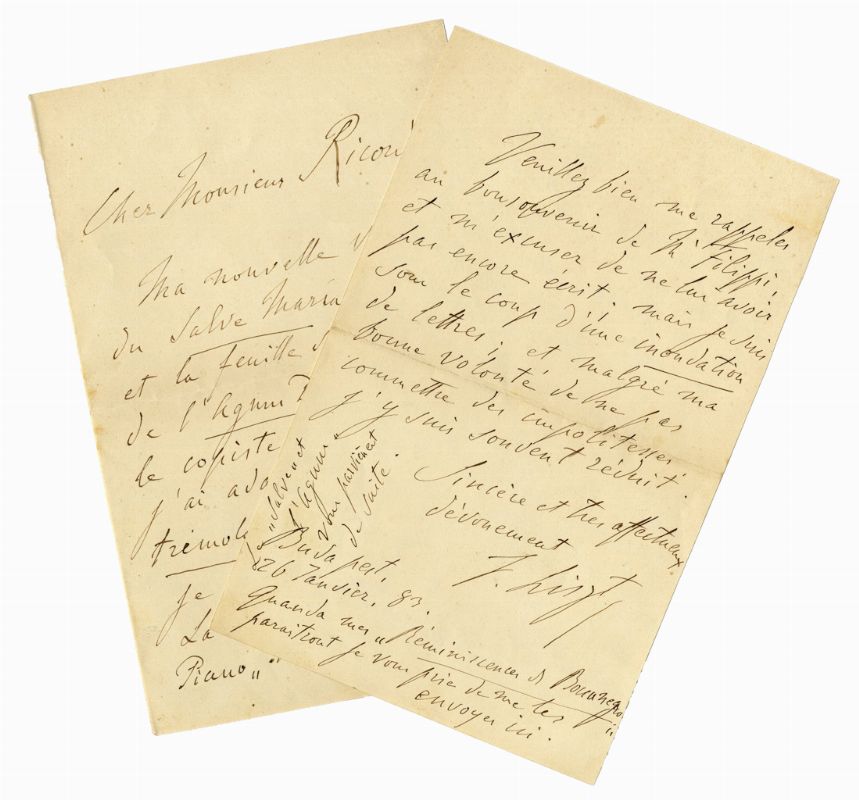 Cher Monsieur Ricord
Ma nouvelle
du Salve Maria
et la feuille
de l'Agnus
le copiste
j'ai ado
trémol
je
La
Piano "
Veuillez bien me rappeler
au bon souvenir de Mr Filippi,
et m'éxcuser de ne lui avoir
pas encore écrit; mais je suis
sous le coup d'une inondation
de lettres; et malgré ma
bonne volonté de ne pas
commettre des impolitesses
j'y suis souvent réduit.
Sincère et très affectueux
dévouement
F. Liszt
Budapest,
26 Janvier, 83.
"Salve" et
l'Agnus "
vous parviènent
de suite.
Quand mes "Réminiscences de Boccanegra"
paraitront je vous prie de me les
envoyer ici.